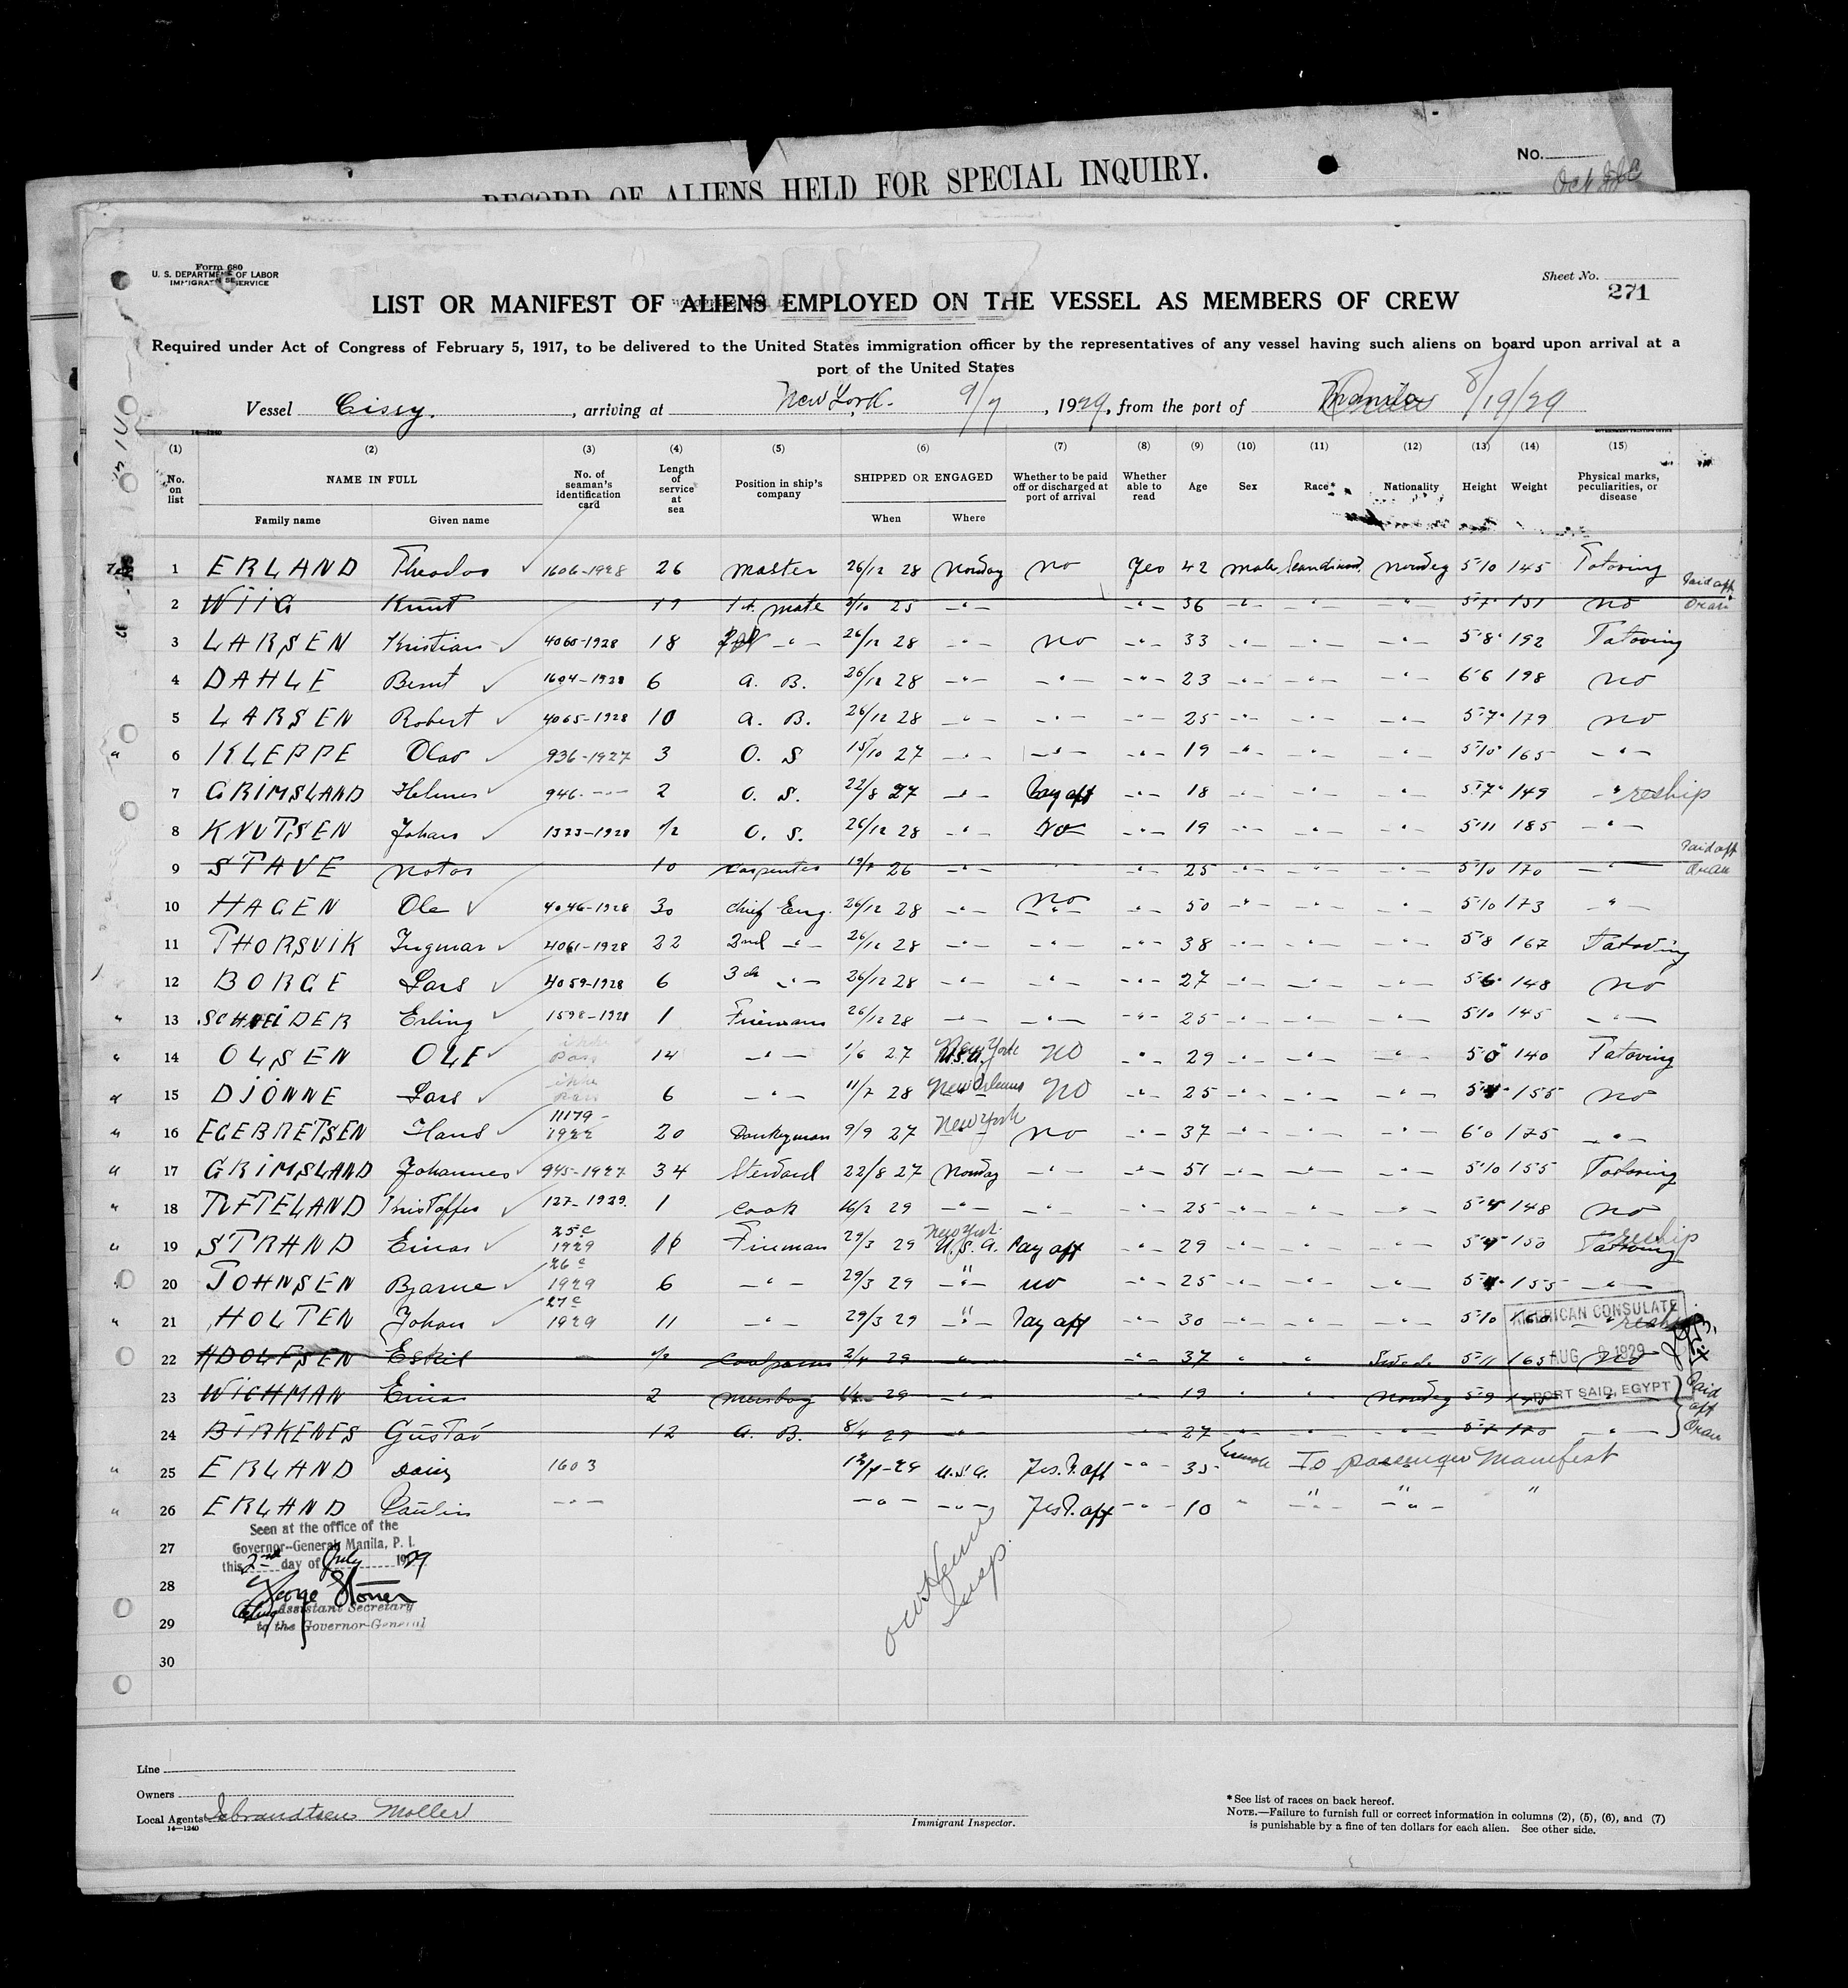 RECORD OF ALIENS HELD FOR SPECIAL INQUIRY.
No.
Form 680
U. S. DEPARTMENT OF LABOR
IMMIGRATION SERVICE
Sheet No.
271
LIST OR MANIFEST OF ALIENS EMPLOYED ON THE VESSEL AS MEMBERS OF CREW
Required under Act of Congress of February 5, 1917, to be delivered to the United States immigration officer by the representatives of any vessel having such aliens on board upon arrival at a
port of the United States
Vessel Cissy. , arriving at New York. 9/7 , 1929, from the port of Manila 8/19/29
14—1240
GOVERNMENT PRINTING OFFICE
(1) (2) (3) (4) (5) (6) (7) (8) (9) (10) (11) (12) (13) (14) (15)
No. on list NAME IN FULL No. of seaman's identification card Length of service at sea Position in ship's company SHIPPED OR ENGAGED Whether to be paid off or discharged at port of arrival Whether able to read Age Sex Race* Nationality Height Weight Physical marks, peculiarities, or disease
Family name Given name When Where
1 ERLAND Theodor 1606-1928 26 Master 26/12 28 Norway no Yes 42 male Scandinav. Norweg 5'10 145 Tatoving
2 WIIG Knut 17 1st mate 9/10 25 -"- -"- 36 -"- -"- -"- 5'7" 151 no Paid off Oran
3 LARSEN Kristian 4060-1928 18 2nd -"- 26/12 28 -"- no -"- 33 -"- -"- -"- 5'8" 192 Tatoving
4 DAHLE Bernt 1604-1928 6 A. B. 26/12 28 -"- -"- -"- 23 -"- -"- -"- 6'6 198 no
5 LARSEN Robert 4065-1928 10 A. B. 26/12 28 -"- -"- -"- 25 -"- -"- -"- 5'7" 179 no
6 KLEPPE Olav 936-1927 3 O. S 15/10 27 -"- -"- -"- 19 -"- -"- -"- 5'10" 165 -"-
7 GRIMSLAND Helmer 946 -"- 2 O. S. 22/8 27 -"- Pay off -"- 18 -"- -"- -"- 5'7" 149 -"- reship
8 KNUTSEN Johan 1323-1928 1/2 O. S. 26/12 28 -"- No -"- 19 -"- -"- -"- 5'11 185 -"-
9 STAVE 10 Carpenter 19/7 26 -"- " -"- 25 -"- -"- -"- 5'10 170 -"- Paid off Oran
10 HAGEN Ole 4046-1928 30 Chief Eng. 26/12 28 -"- no -"- -"- 50 -"- -"- -"- 5'10 173 -"-
11 THORSVIK Ingmar 4061-1928 22 2nd -"- 26/12 28 -"- -"- -"- 38 -"- -"- -"- 5'8 167 Tatoving
12 BORGE Lars 4059-1928 6 3d -"- 26/12 28 -"- -"- -"- 27 -"- -"- -"- 5'6" 148 no
13 SCHNEIDER Erling 1598-1928 1 Fireman 26/12 28 -"- -"- -"- 25 -"- -"- -"- 5'10 145 -"-
14 OLSEN OLE ikke pass 14 -"- 1/6 27 U.S.A. New York NO -"- 29 -"- -"- -"- 140 Tatoving
15 DJONNE Lars ikke pass 6 -"- 11/7 28 New Orleans NO -"- 25 -"- -"- -"- 155 no
16 EGEBRETSEN Hans 11179-1922 20 Donkeyman 9/9 27 New York no -"- 37 -"- -"- -"- 6'0 175 -"-
17 GRIMSLAND Johannes 945-1927 34 Steward 22/8 27 Norway -"- -"- 51 -"- -"- -"- 5'10 155 Tatoving
18 TUFTELAND Kristoffer 127-1929. 1 Cook 16/2 29 -"- -"- -"- 25 -"- -"- -"- 5'4 148 no
19 STRAND Einar 25c 1929 Fireman 29/3 29 New York U.S.A. Pay off -"- 29 -"- -"- -"- 150 Tatoving reship
20 JOHNSEN Bjarne 26c 1929 6 -"- 29/3 29 -"- no -"- 25 -"- -"- -"- 155 -"-
21 HOLTEN Johan 27c 1929 11 -"- 29/3 29 -"- Pay off -"- 30 -"- -"- -"- 5'10 160 -"- reship
22 ADOLFSEN Eskil 2/4 29 -"- -"- 37 " " Swede 5'11 165 no
23 WICHMAN Einar 2 Messboy 29 -"- -"- 19 " " Norweg 5'9 -"- Paid off Oran
24 BIRKENES Gustav 12 A. B. 8/4 29 -"- -"- 27 -"- -"- -"- 5'7 170 -"-
25 ERLAND Daisy 1603 12/4-29 U.S.A. Yes. P. off -"- 35 Female To passenger Manifest
26 ERLAND Paulin -"- -"- -"- Yes P. off -"- 10 " " " "
27
28
29
30
AMERICAN CONSULATE
AUG 1929
PORT SAID, EGYPT
Seen at the office of the
Governor-General, Manila, P. I.
this 2nd day of July 1929
George Stoner
Acting Assistant Secretary
to the Governor-General
Insp.
Line
Owners
Local Agents Isbrandtsen Moller
14—1240
Immigrant Inspector.
* See list of races on back hereof.
NOTE.—Failure to furnish full or correct information in columns (2), (5), (6), and (7)
is punishable by a fine of ten dollars for each alien. See other side.